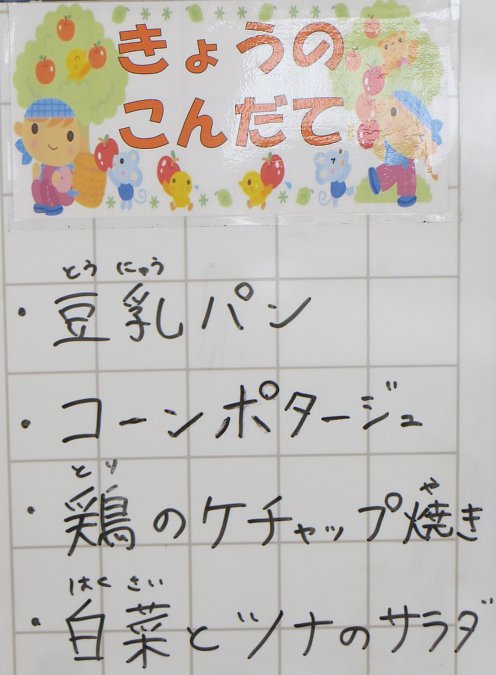 きょうの
こんだて
とう にゅう
・豆乳パン
・コーンポタージュ
とり
や
・鶏のケチャップ焼き
はく さい
・白菜とツナのサラダ